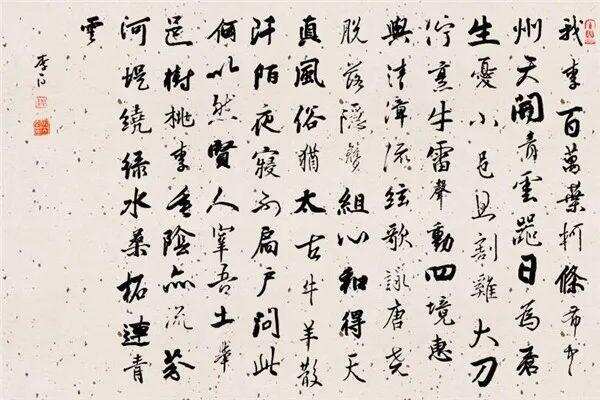 我李百萬葉柯條布中
州天開青雲器日為蒼
生憂小邑且割雞大刀
佇烹牛雷聲動四境惠
與清漳流絃歌詠唐堯
脫落隱簪組心和得天
真風俗猶太古牛羊散
阡陌夜寢不扃戶問此
何以然賢人宰吾土舉
邑樹桃李垂陰亦流芬
河堤繞綠水桑柘連青
雲
李